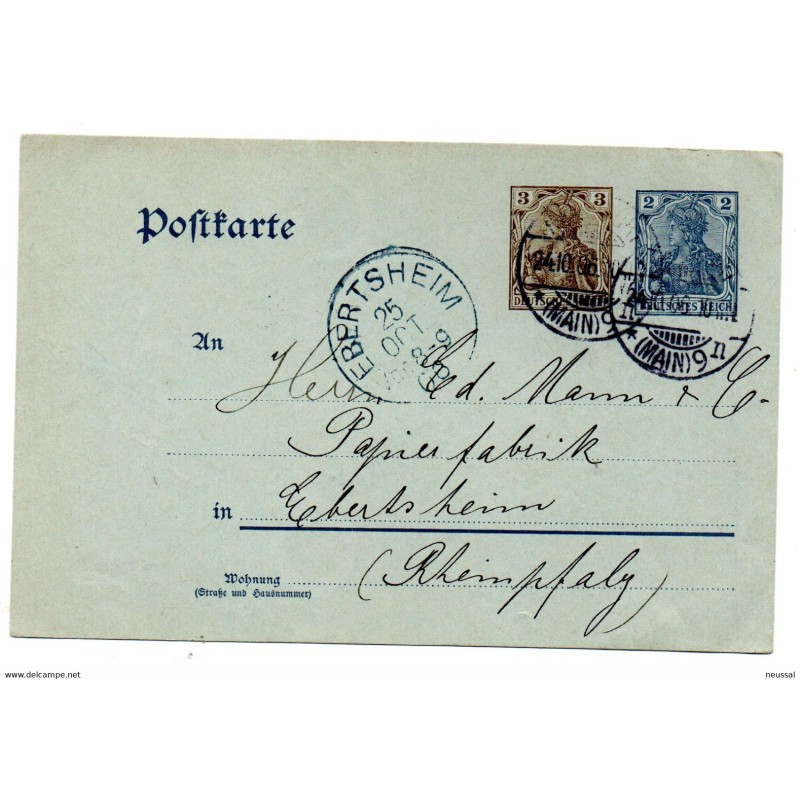 Postkarte
3
2
DEUTSCH
DEUTSCHES REICH
24.10.06
(MAIN) 9 n
(MAIN) 9 n
EBERTSHEIM
25
OCT
An
Herrn Ed. Mann & C.
Papierfabrik
in Ebertsheim
(Rheinpfalz)
Wohnung
(Straße und Hausnummer)
www.delcampe.net
neussal